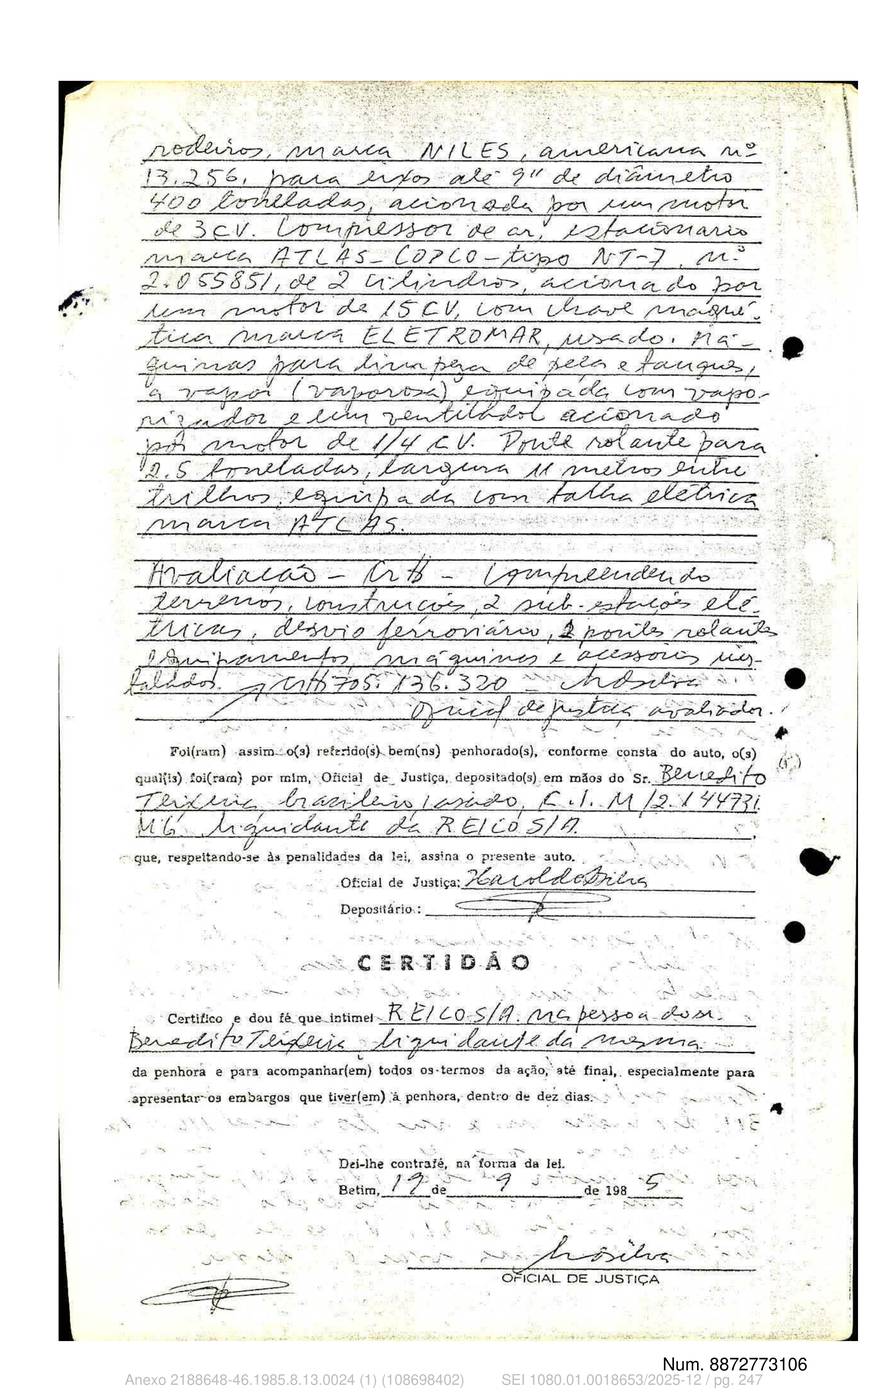 rodeiros, marca NILES, americana nº
13.256, para eixos até 9" de diâmetro
400 toneladas, acionada por um motor
de 3 CV. Compressor de ar, estacionario
marca ATLAS-COPCO - tipo NT-7 n.º
2.055851, de 2 cilindros, acionado por
um motor de 15 CV, com chave magné-
tica marca ELETROMAR, usado. Má-
quinas para limpeza de peças e tanques,
a vapor (vaporosa) equipada com vapo-
rizador e um ventilador acionado
por motor de 1/4 CV. Ponte rolante para
2.5 toneladas, largura 11 metros entre
trilhos, equipada com talha elétrica
marca ATLAS.
Avaliação - Cr$ - Compreendendo
terrenos, construções, 2 sub-estações elé-
tricas, desvio ferroviário, 2 pontes rolantes
equipamentos, máquinas e acessorios ins-
talados. Cr$ 705.136.320 - HdSilva
Oficial de justiça avaliador.
Foi(ram) assim o(s) referido(s) bem(ns) penhorado(s), conforme consta do auto, o(s)
qual(is) foi(ram) por mim, Oficial de Justiça, depositado(s) em mãos do Sr. Benedito
Teixeira, brasileiro, casado, C.I. M/2.144731
MG liquidante da REICO S/A.
que, respeitando-se às penalidades da lei, assina o presente auto.
Oficial de Justiça: Haroldo Silva
Depositário:
CERTIDÃO
Certifico e dou fé que intimei REICO S/A. na pessoa do sr.
Benedito Teixeira liquidante da mesma
da penhora e para acompanhar(em) todos os termos da ação, até final, especialmente para
apresentar os embargos que tiver(em) à penhora, dentro de dez dias.
Dei-lhe contrafé, na forma da lei.
Betim, 19 de 9 de 1985
HdSilva
OFICIAL DE JUSTIÇA
Num. 8872773106
Anexo 2188648-46.1985.8.13.0024 (1) (108698402) SEI 1080.01.0018653/2025-12 / pg. 247